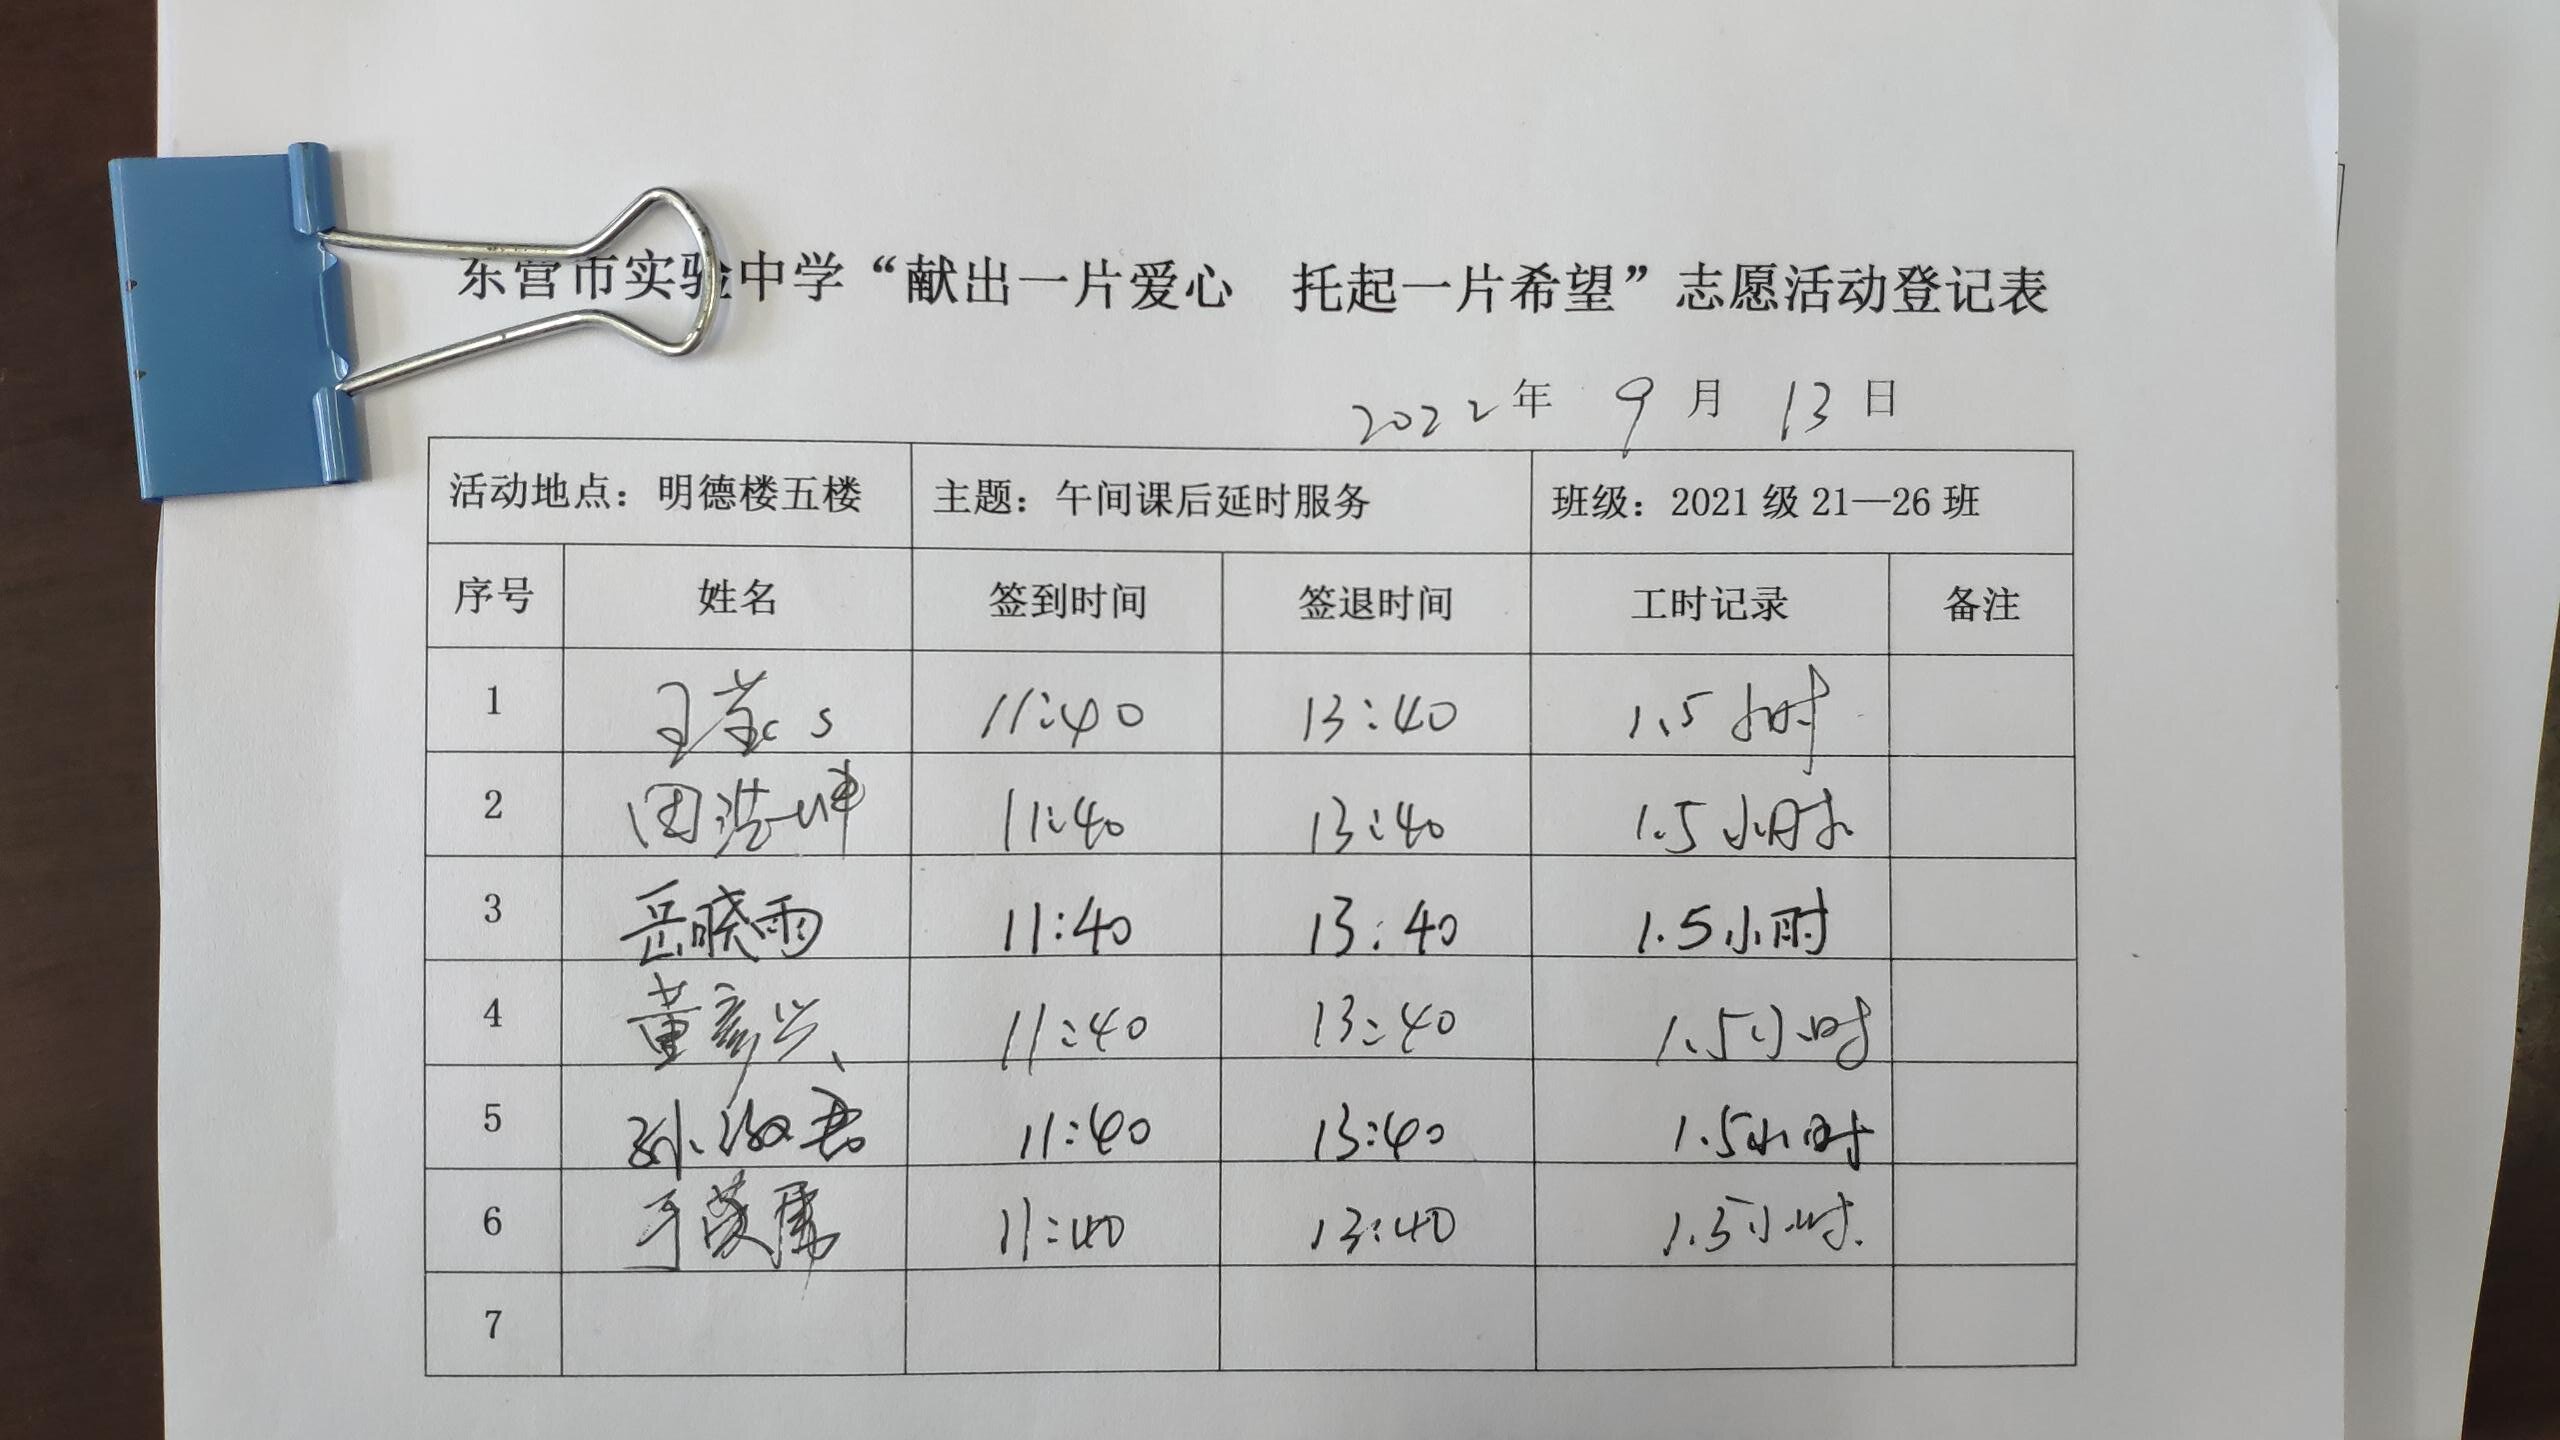 东营市实验中学“献出一片爱心 托起一片希望”志愿活动登记表
2022年 9月 13日
活动地点：明德楼五楼 主题：午间课后延时服务 班级：2021级21—26班
序号 姓名 签到时间 签退时间 工时记录 备注
1 11:40 13:40 1.5小时
2 田浩坤 11:40 13:40 1.5小时
3 岳晓雨 11:40 13:40 1.5小时
4 董彦兴 11:40 13:40 1.5小时
5 孙淑君 11:40 13:40 1.5小时
6 11:40 13:40 1.5小时.
7